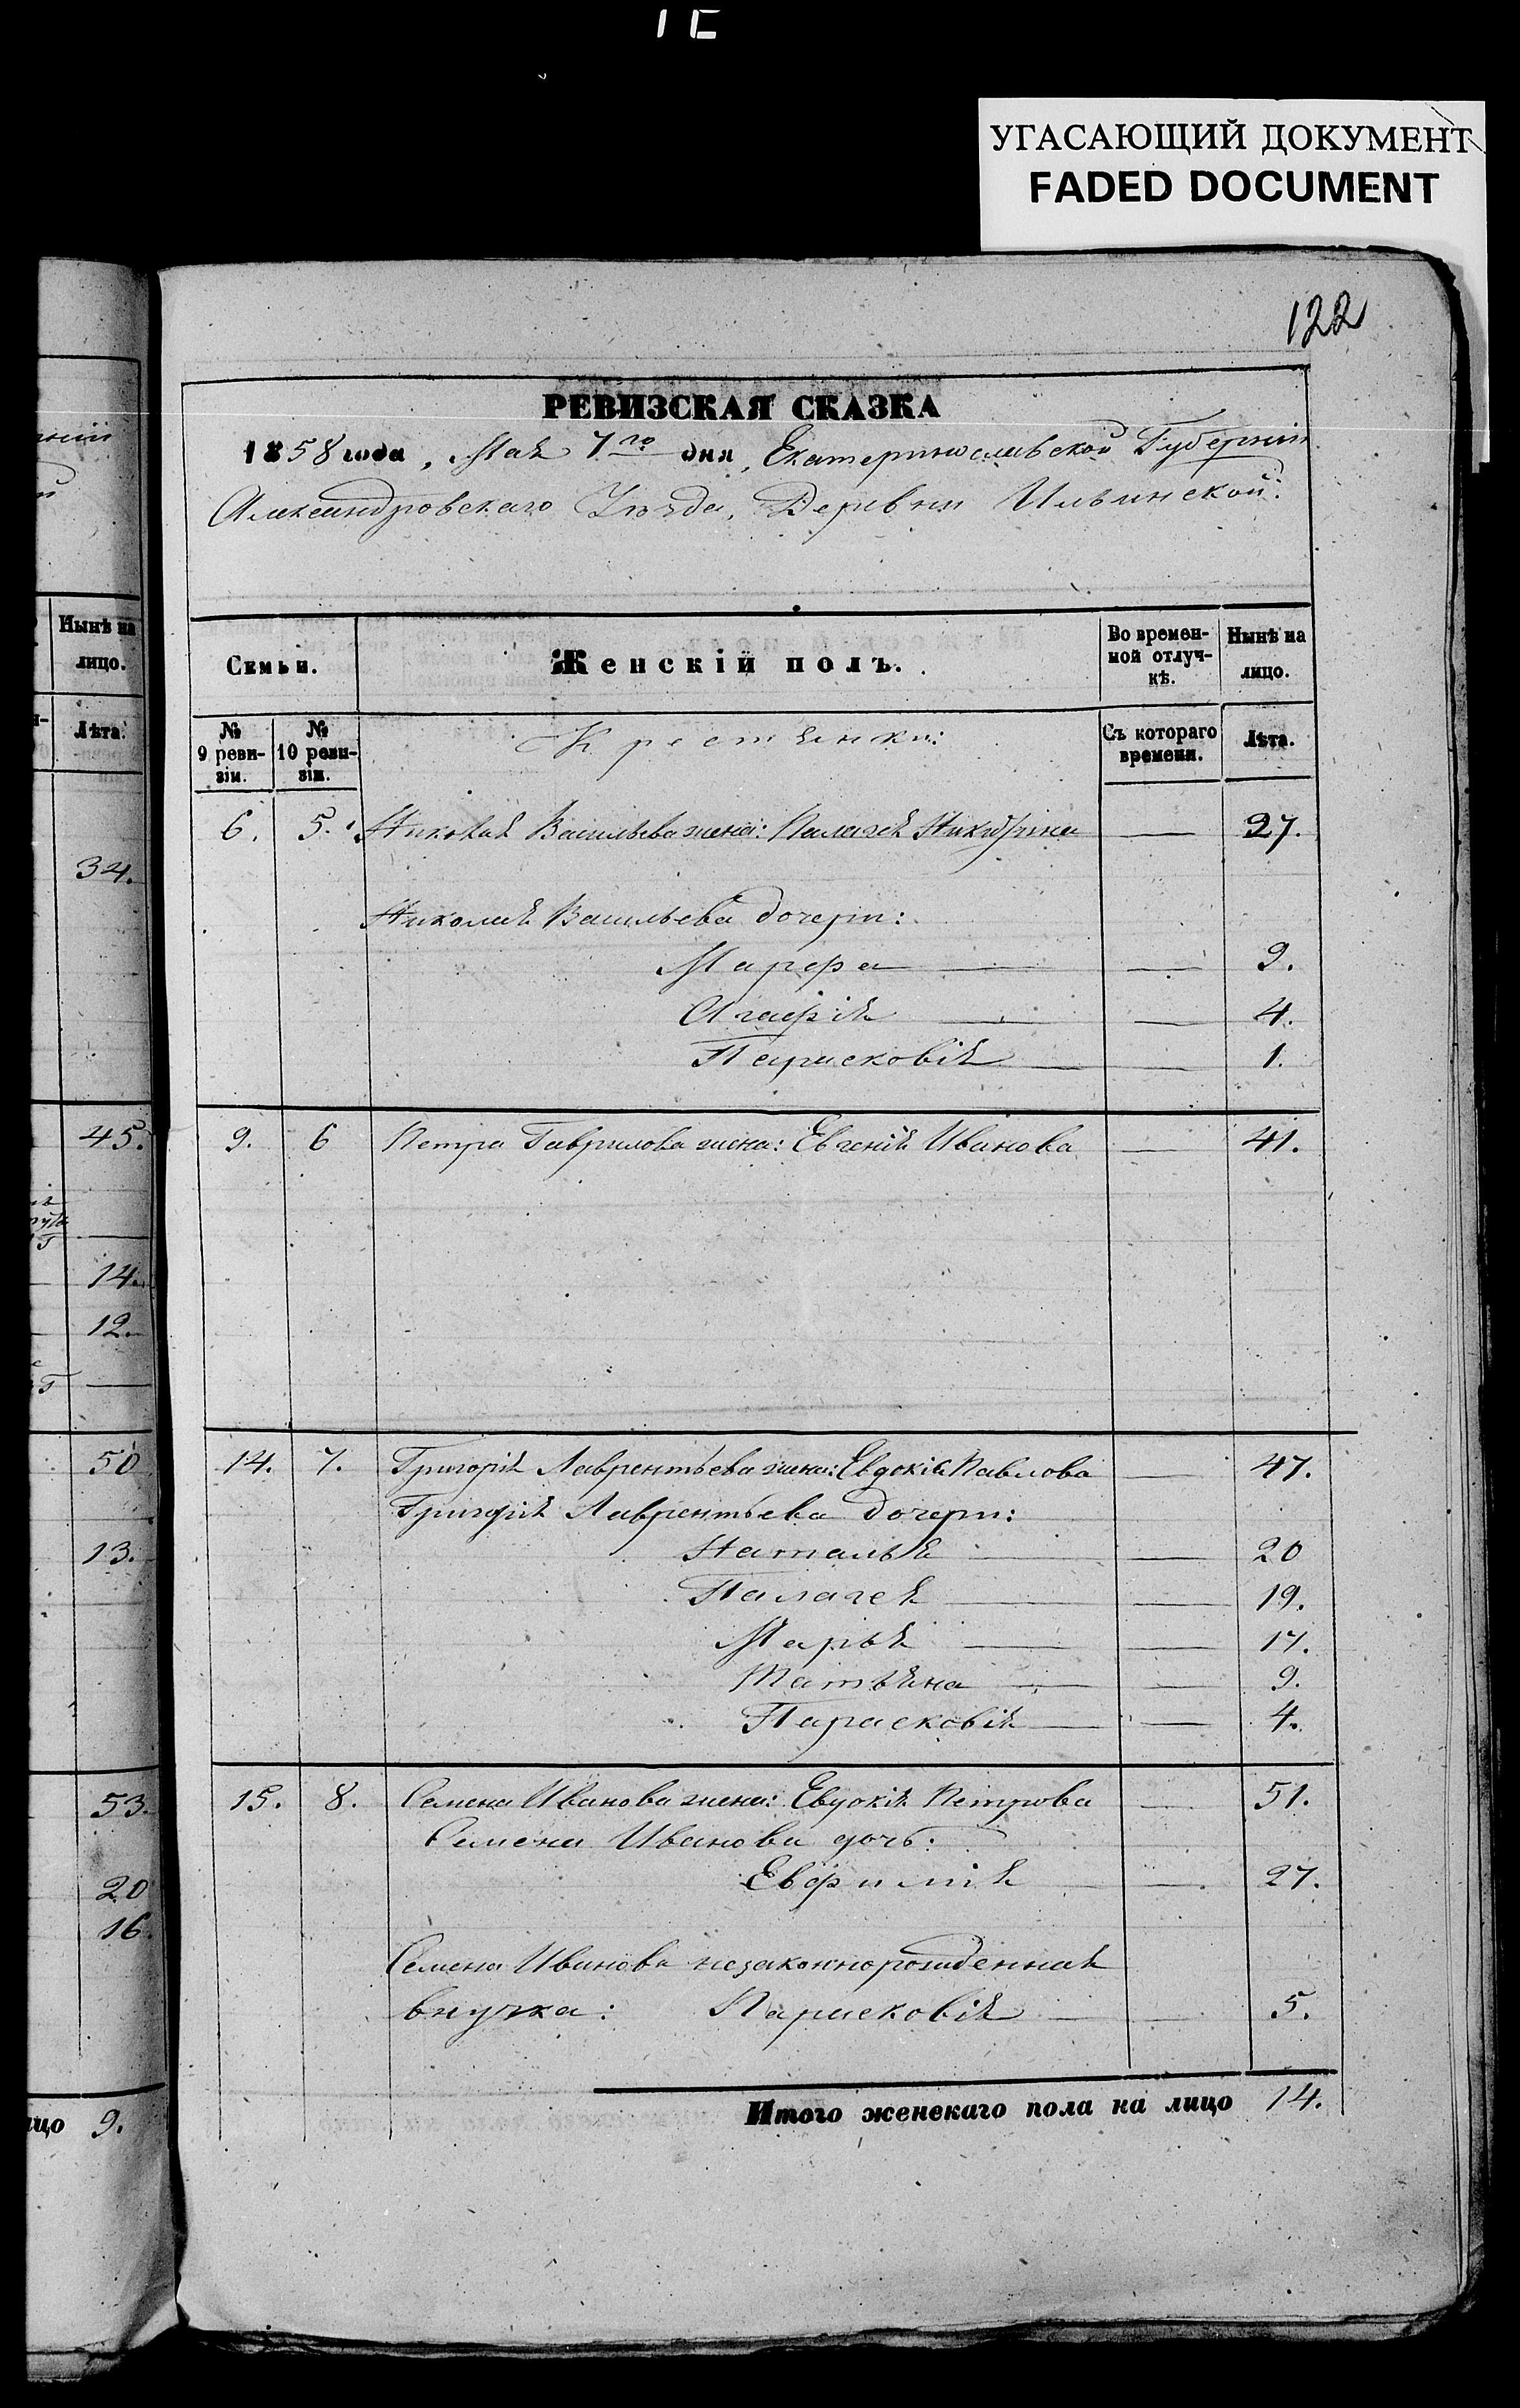 УГАСАЮЩИЙ ДОКУМЕНТ
FADED DOCUMENT
122
РЕВИЗСКАЯ СКАЗКА
1858 года, Мая 7го дня, Екатеринославской Губернии
Александровскаго Уѣзда, Деревни Ильинской:
Семьи. Женскій полъ. Во временной отлучкѣ. Нынѣ на лицо.
№ 9 ревизіи. № 10 ревизіи. Крестьянки: Съ котораго времени. Лѣта.
6. 5. Николая Васильева жена: Палагея Никифорова — 27.
Николая Васильева дочери:
Марфа — 9.
Агафія — 4.
Парасковія — 1.
9. 6 Петра Гаврилова жена: Евгенія Иванова — 41.
14. 7. Григорія Лаврентьева жена: Евдокія Павлова — 47.
Григорія Лаврентьева дочери:
Наталья — 20
Палагея — 19.
Марья — 17.
Татьяна — 9.
Парасковія — 4.
15. 8. Семена Иванова жена: Евдокія Петрова — 51.
Семена Иванова дочь:
Евфимія — 27.
Семена Иванова незаконнорожденная
внучка: Парасковія — 5.
Итого женскаго пола на лицо 14.
Нынѣ на
лицо.
Лѣта.
34.
45.
14.
12.
50
13.
53.
20
16.
9.